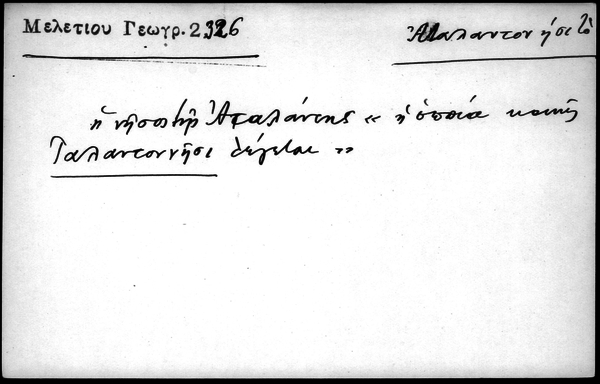 Μελετίου Γεωγρ. 2, 326
Ἀταλαντονήσι τὸ
ἡ νῆσος τῆς Ἀταλάντης « ἡ ὁποία κοινῶς
Ταλαντονῆσι λέγεται »